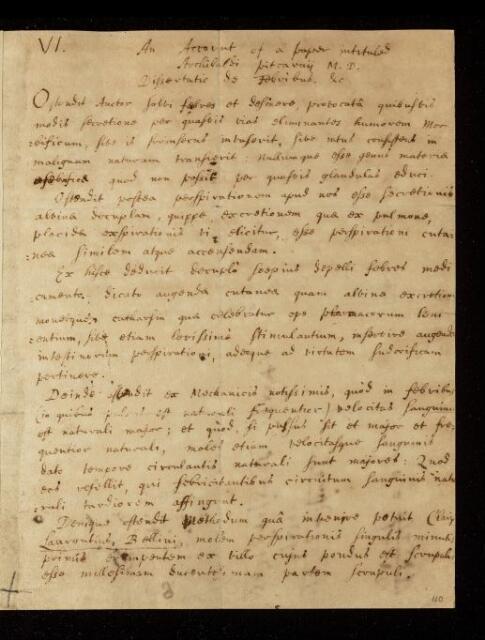 VI. An Account of a paper intituled
Archibaldi Pitcarnij M. D.
Dissertatio de Febribus. &c
Ostendit Auctor solvi febres et desinere, provocatâ quibusvis
modis secretione per quasvis vias eliminantes humorem Mor-
bificum, sive is forinsecus intraverit, sive intus consistens in
malignam naturam transierit: Nullumque esse genus materiæ
quod non possit per quasvis glandulas educi.
Ostendit postea perspirationem apud nos esse secretionis
alvinæ decuplam, quippe excretionem quæ ex pulmone,
placida exspirationis vi elicitur, esse perspirationi cuta-
neæ similem atque accensendam.
Ex hisce deducit decuplo sæpius depelli febres medi-
camento, dicato augendæ cutaneæ quam alvinæ excretioni
monetque, catharsin quæ celebratur ope pharmacorum leni-
entium, sive etiam levissime stimulantium, inservire augendæ
intestinorum perspirationi, adeoque ad virtutem sudorificam
pertinere.
Deinde ostendit ex Mechanicis notissimis, quòd in febribus
(in quibus pulsus est naturali frequentior) velocitas sanguinis
est naturali major; et quòd, si pulsus sit et major et fre-
quentior naturali, moles etiam velocitasque sanguinis
dato tempore circulantis naturali sunt majores: Quod
eos refellit, qui febricitantibus circuitum sanguinis natu-
rali tardiorem affingunt.
Denique ostendit Methodum quâ invenire potuit Clariss
Laurentius Bellini, molem perspirationis singulis minutis
primis ex illo cujus pondus est scrupuli,
esse millesimam ducentesimam partem scrupuli.
110